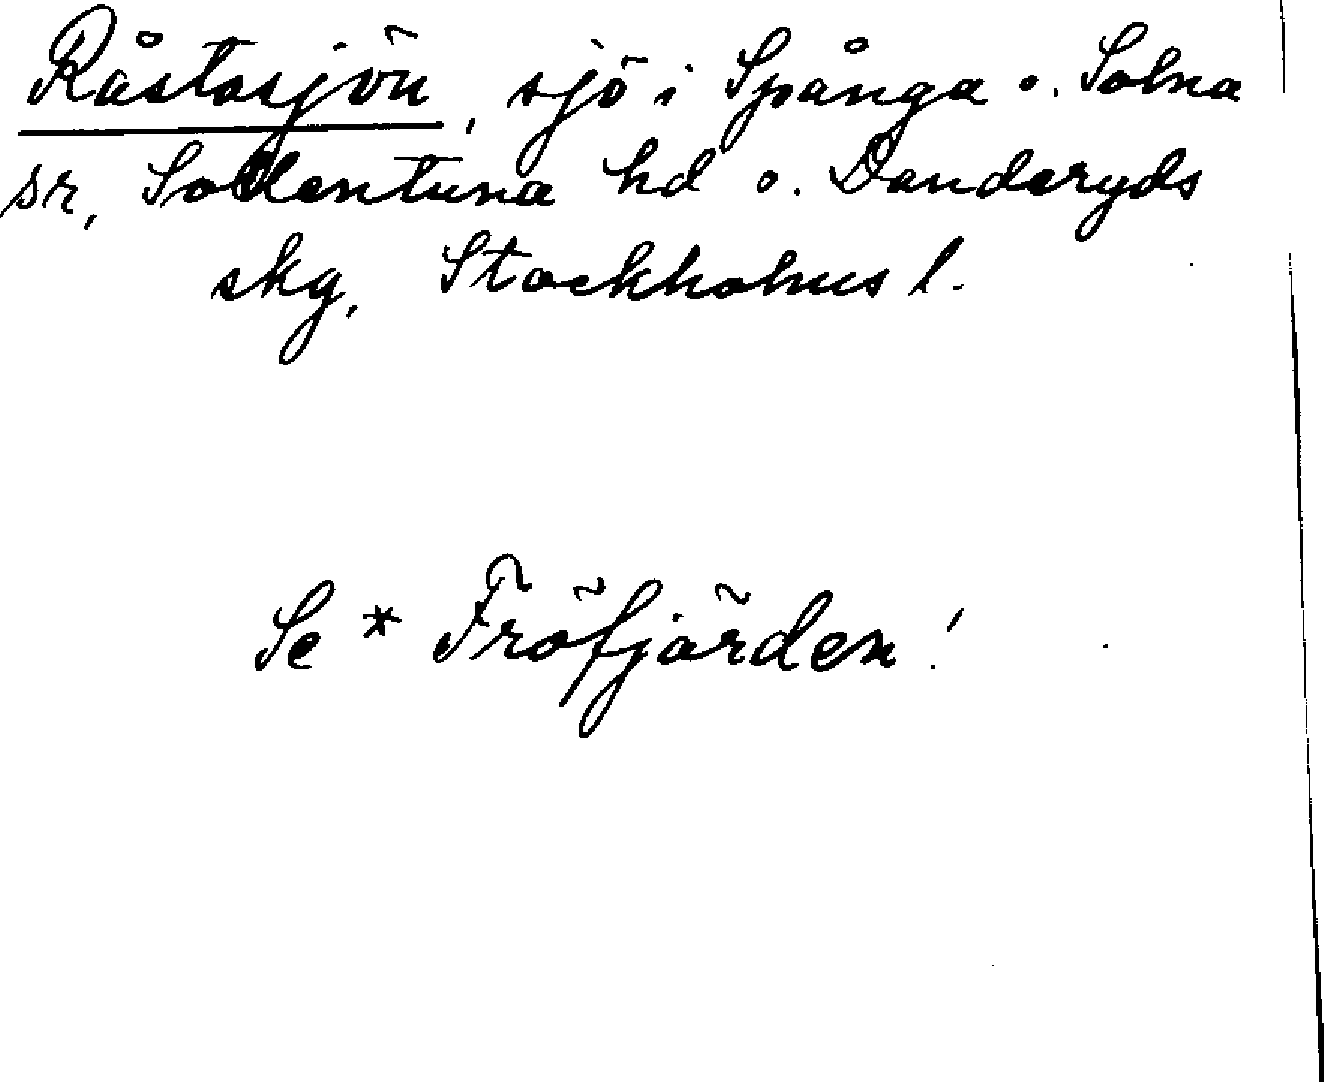 Råstasjön, sjö i Spånga o. Solna
sr, Sollentuna hd o. Danderyds
skg, Stockholms l.
Se * Fröfjärden!